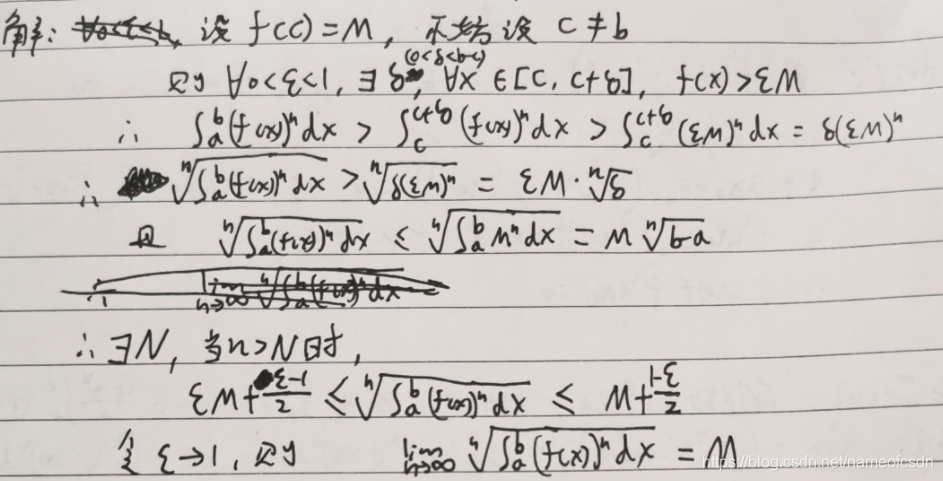 解: 设 f(c)=M, 不妨设 c≠b
(0<δ<b-c)
则 ∀0<ε<1, ∃δ, ∀x∈[c, c+δ], f(x)>εM
∴ ∫ₐᵇ(f(x))ⁿdx > ∫_c^{c+δ}(f(x))ⁿdx > ∫_c^{c+δ}(εM)ⁿdx = δ(εM)ⁿ
∴ ⁿ√(∫ₐᵇ(f(x))ⁿdx) > ⁿ√(δ(εM)ⁿ) = εM·ⁿ√δ
且 ⁿ√(∫ₐᵇ(f(x))ⁿdx) ≤ ⁿ√(∫ₐᵇMⁿdx) = M ⁿ√(b-a)
∴ ∃N, 当n>N时,
εM+(ε-1)/2 ≤ ⁿ√(∫ₐᵇ(f(x))ⁿdx) ≤ M+(1-ε)/2
令 ε→1, 则 lim_{n→∞} ⁿ√(∫ₐᵇ(f(x))ⁿdx) = M
https://blog.csdn.net/nameofcsdn